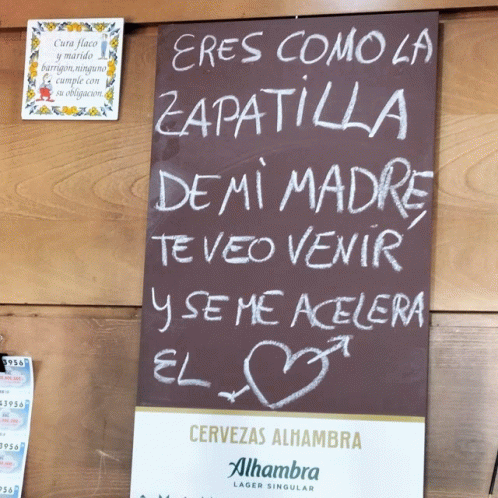 Cura flaco
y marido
barrigon, ninguno
cumple con
su obligacion.
ERES COMO LA
ZAPATILLA
DE MI MADRE
TE VEO VENIR
Y SE ME ACELERA
EL
CERVEZAS ALHAMBRA
Alhambra
LAGER SINGULAR
3956
43956
3956
956